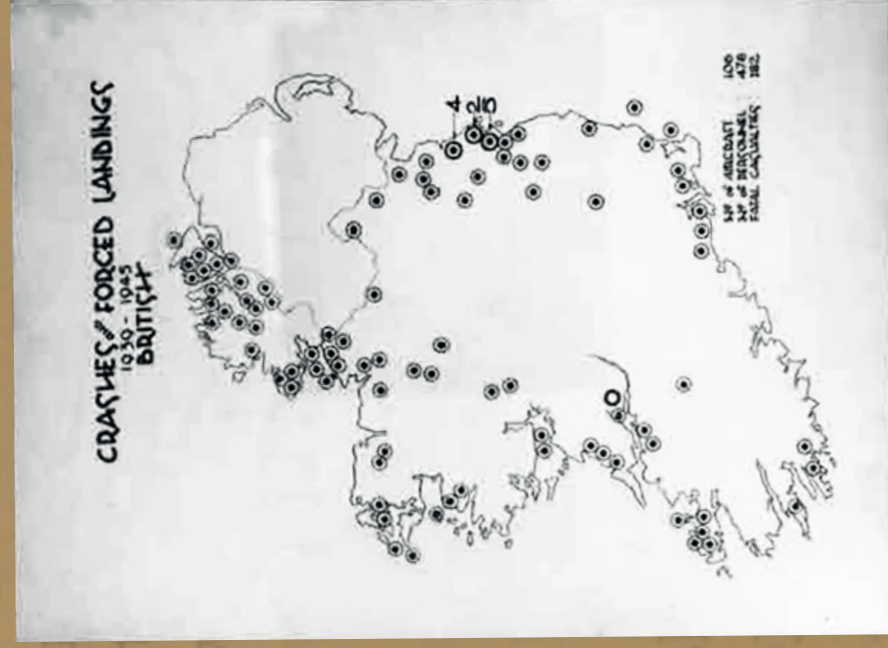 CRASHES/FORCED LANDINGS
1939 - 1945
BRITISH
4
2
Nº OF AIRCRAFT :
Nº OF PERSONNEL : 478
FATAL CASUALTIES : 182